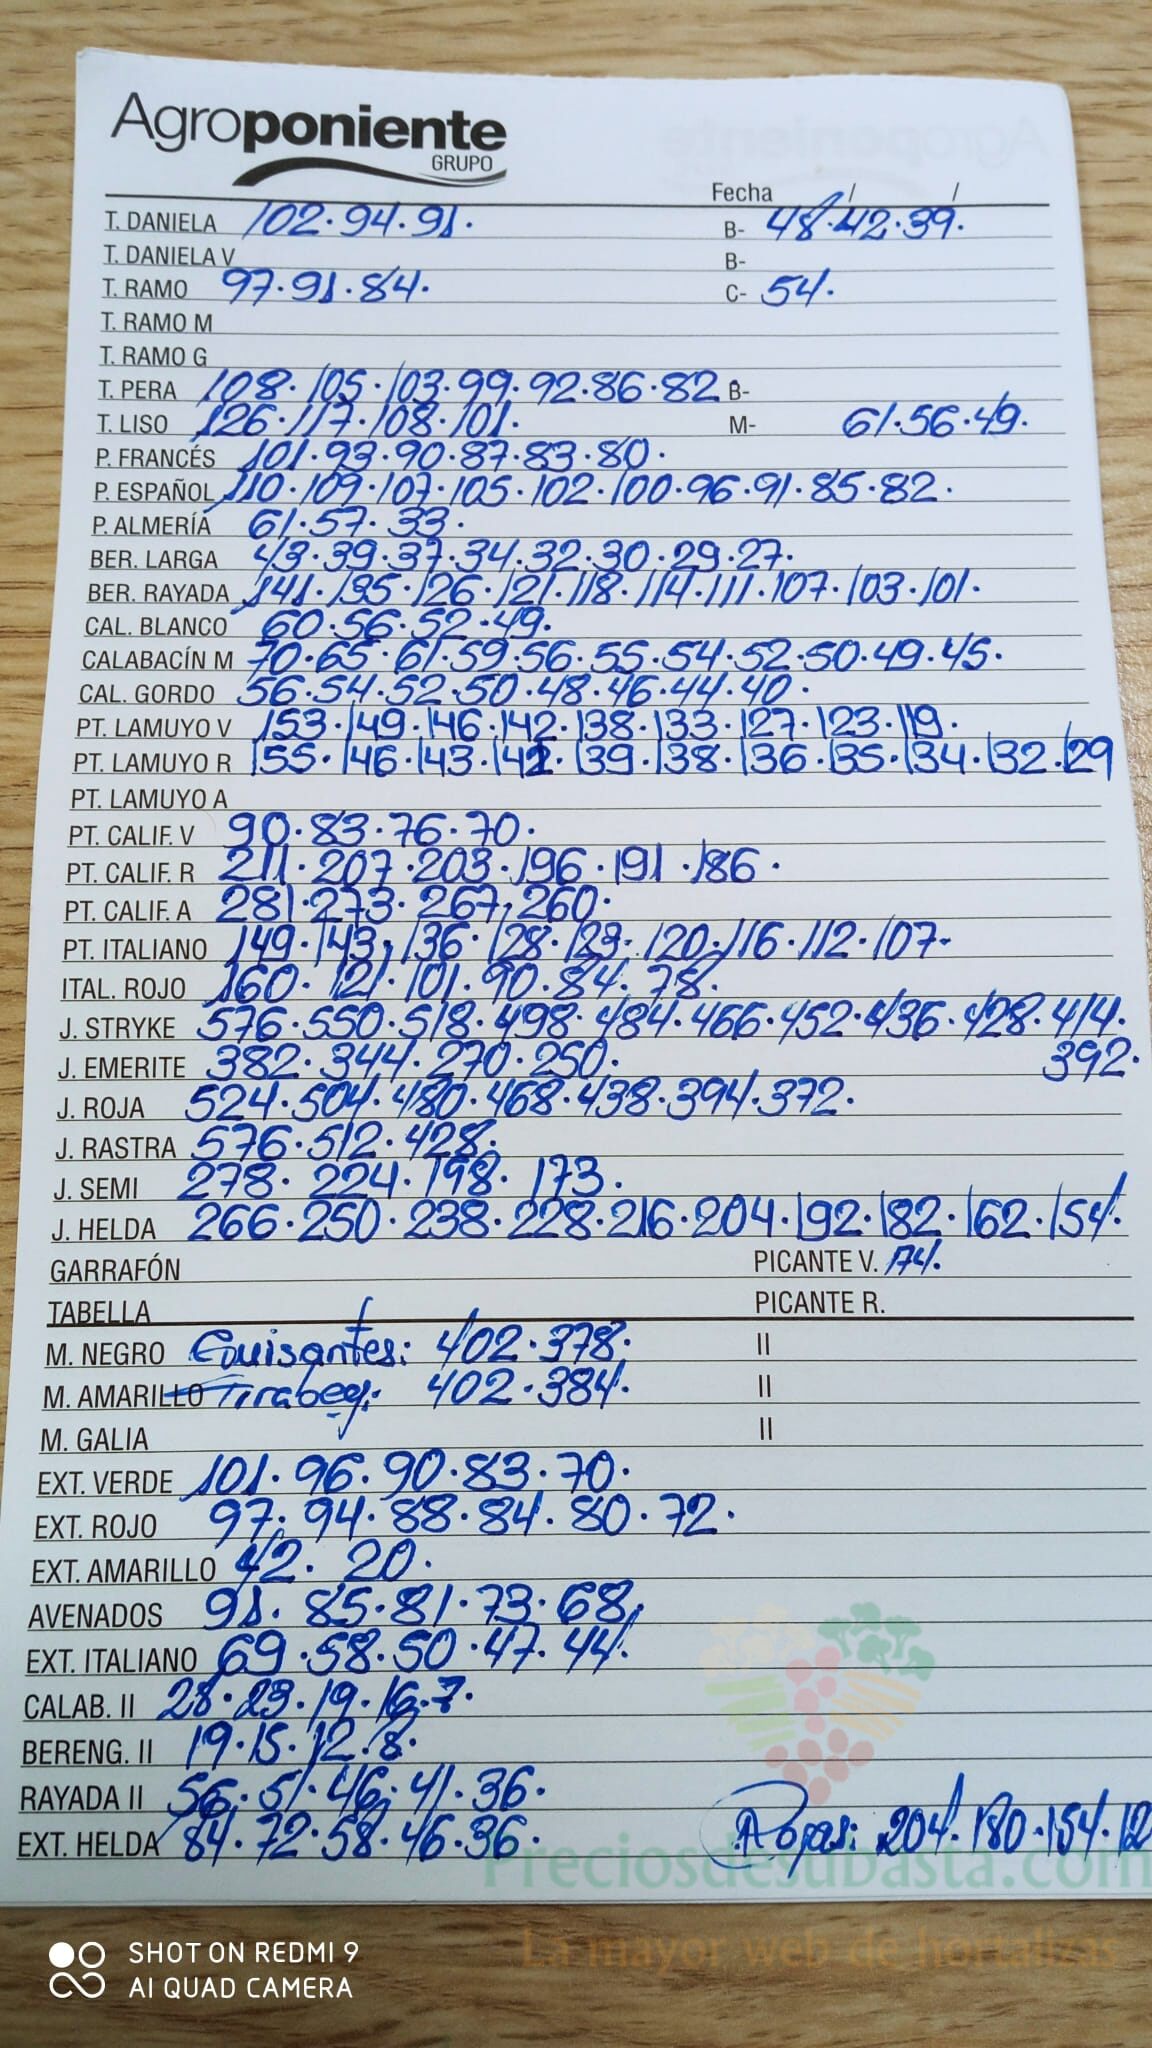 Agroponiente
GRUPO
Fecha / /
T. DANIELA 102·94·91. B- 48·42·39.
T. DANIELA V B-
T. RAMO 97·91·84. C- 54.
T. RAMO M
T. RAMO G
T. PERA 108·105·103·99·92·86·82. B-
T. LISO 126·117·108·101. M- 61·56·49.
P. FRANCÉS 101·93·90·87·83·80.
P. ESPAÑOL 110·109·107·105·102·100·96·91·85·82.
P. ALMERÍA 61·57·33.
BER. LARGA 43·39·37·34·32·30·29·27.
BER. RAYADA 141·135·126·121·118·114·111·107·103·101.
CAL. BLANCO 60·56·52·49.
CALABACÍN M 70·65·61·59·56·55·54·52·50·49·45.
CAL. GORDO 56·54·52·50·48·46·44·40.
PT. LAMUYO V 153·149·146·142·138·133·127·123·119.
PT. LAMUYO R 155·146·143·142·139·138·136·135·134·132·129
PT. LAMUYO A
PT. CALIF. V 90·83·76·70.
PT. CALIF. R 211·207·203·196·191·186.
PT. CALIF. A 281·273·267·260.
PT. ITALIANO 149·143·136·128·123·120·116·112·107.
ITAL. ROJO 160·121·101·90·84·78.
J. STRYKE 576·550·518·498·484·466·452·436·428·414.
J. EMERITE 382·344·270·250. 392.
J. ROJA 524·504·480·468·438·394·372.
J. RASTRA 576·512·428.
J. SEMI 278·224·198·173.
J. HELDA 266·250·238·228·216·204·192·182·162·154.
GARRAFÓN PICANTE V. 174.
TABELLA PICANTE R.
M. NEGRO Guisantes: 402·378. II
M. AMARILLO Tirabeq: 402·384. II
M. GALIA II
EXT. VERDE 101·96·90·83·70.
EXT. ROJO 97·94·88·84·80·72.
EXT. AMARILLO 42·20.
AVENADOS 91·85·81·73·68.
EXT. ITALIANO 69·58·50·47·44.
CALAB. II 28·23·19·16·7.
BERENG. II 19·15·12·8.
RAYADA II 56·51·46·41·36.
EXT. HELDA 84·72·58·46·36. 204·180·154·12
Preciosdesubasta.com
La mayor web de hortalizas
SHOT ON REDMI 9
AI QUAD CAMERA